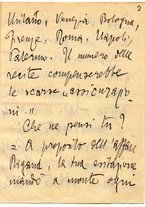 Milano, Venezia, Bologna,
Firenze, Roma, Napoli,
Palermo. Il numero delle
recite compenserebbe
le scarse "assicurazio-
ni."
Che ne pensi tu?
= A proposito dell'affare
Rigand, la tua esitazione
mandò a monte ogni